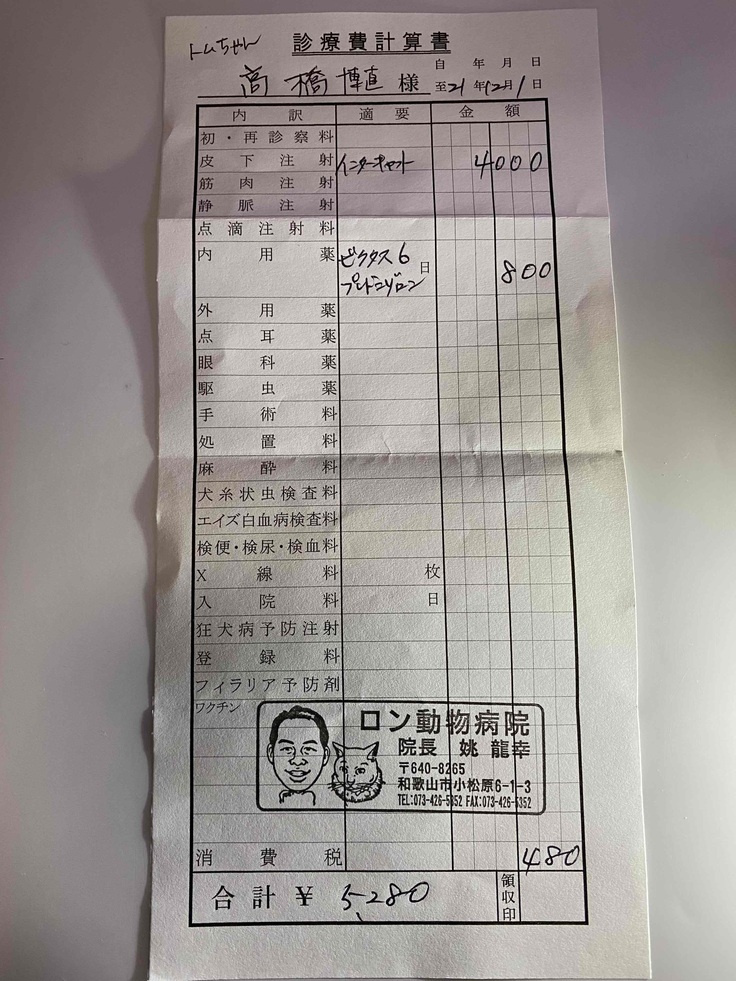 トムちゃん
診療費計算書
自 年 月 日
高橋 博直 様
至21年12月1日
内訳 適要 金額
初・再診察料
皮下注射 インターキャット 4000
筋肉注射
静脈注射
点滴注射料
内用薬 ビクタス6日 800
プレドニゾロン
外用薬
点耳薬
眼科薬
駆虫薬
手術料
処置料
麻酔料
犬糸状虫検査料
エイズ白血病検査料
検便・検尿・検血料
X線料 枚
入院料 日
狂犬病予防注射
登録料
フィラリア予防剤
ワクチン
ロン動物病院
院長 姚 龍幸
〒640-8265
和歌山市小松原6-1-3
TEL:073-426-5352 FAX:073-426-5352
消費税 480
合計 ¥ 5280 領収印